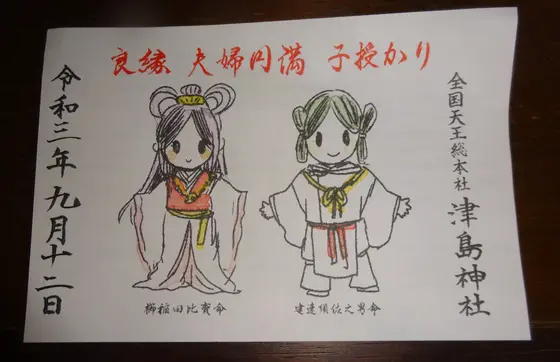 良縁 夫婦円満 子授かり
全国天王総本社 津島神社
建速須佐之男命
櫛稲田比賣命
令和三年九月十二日